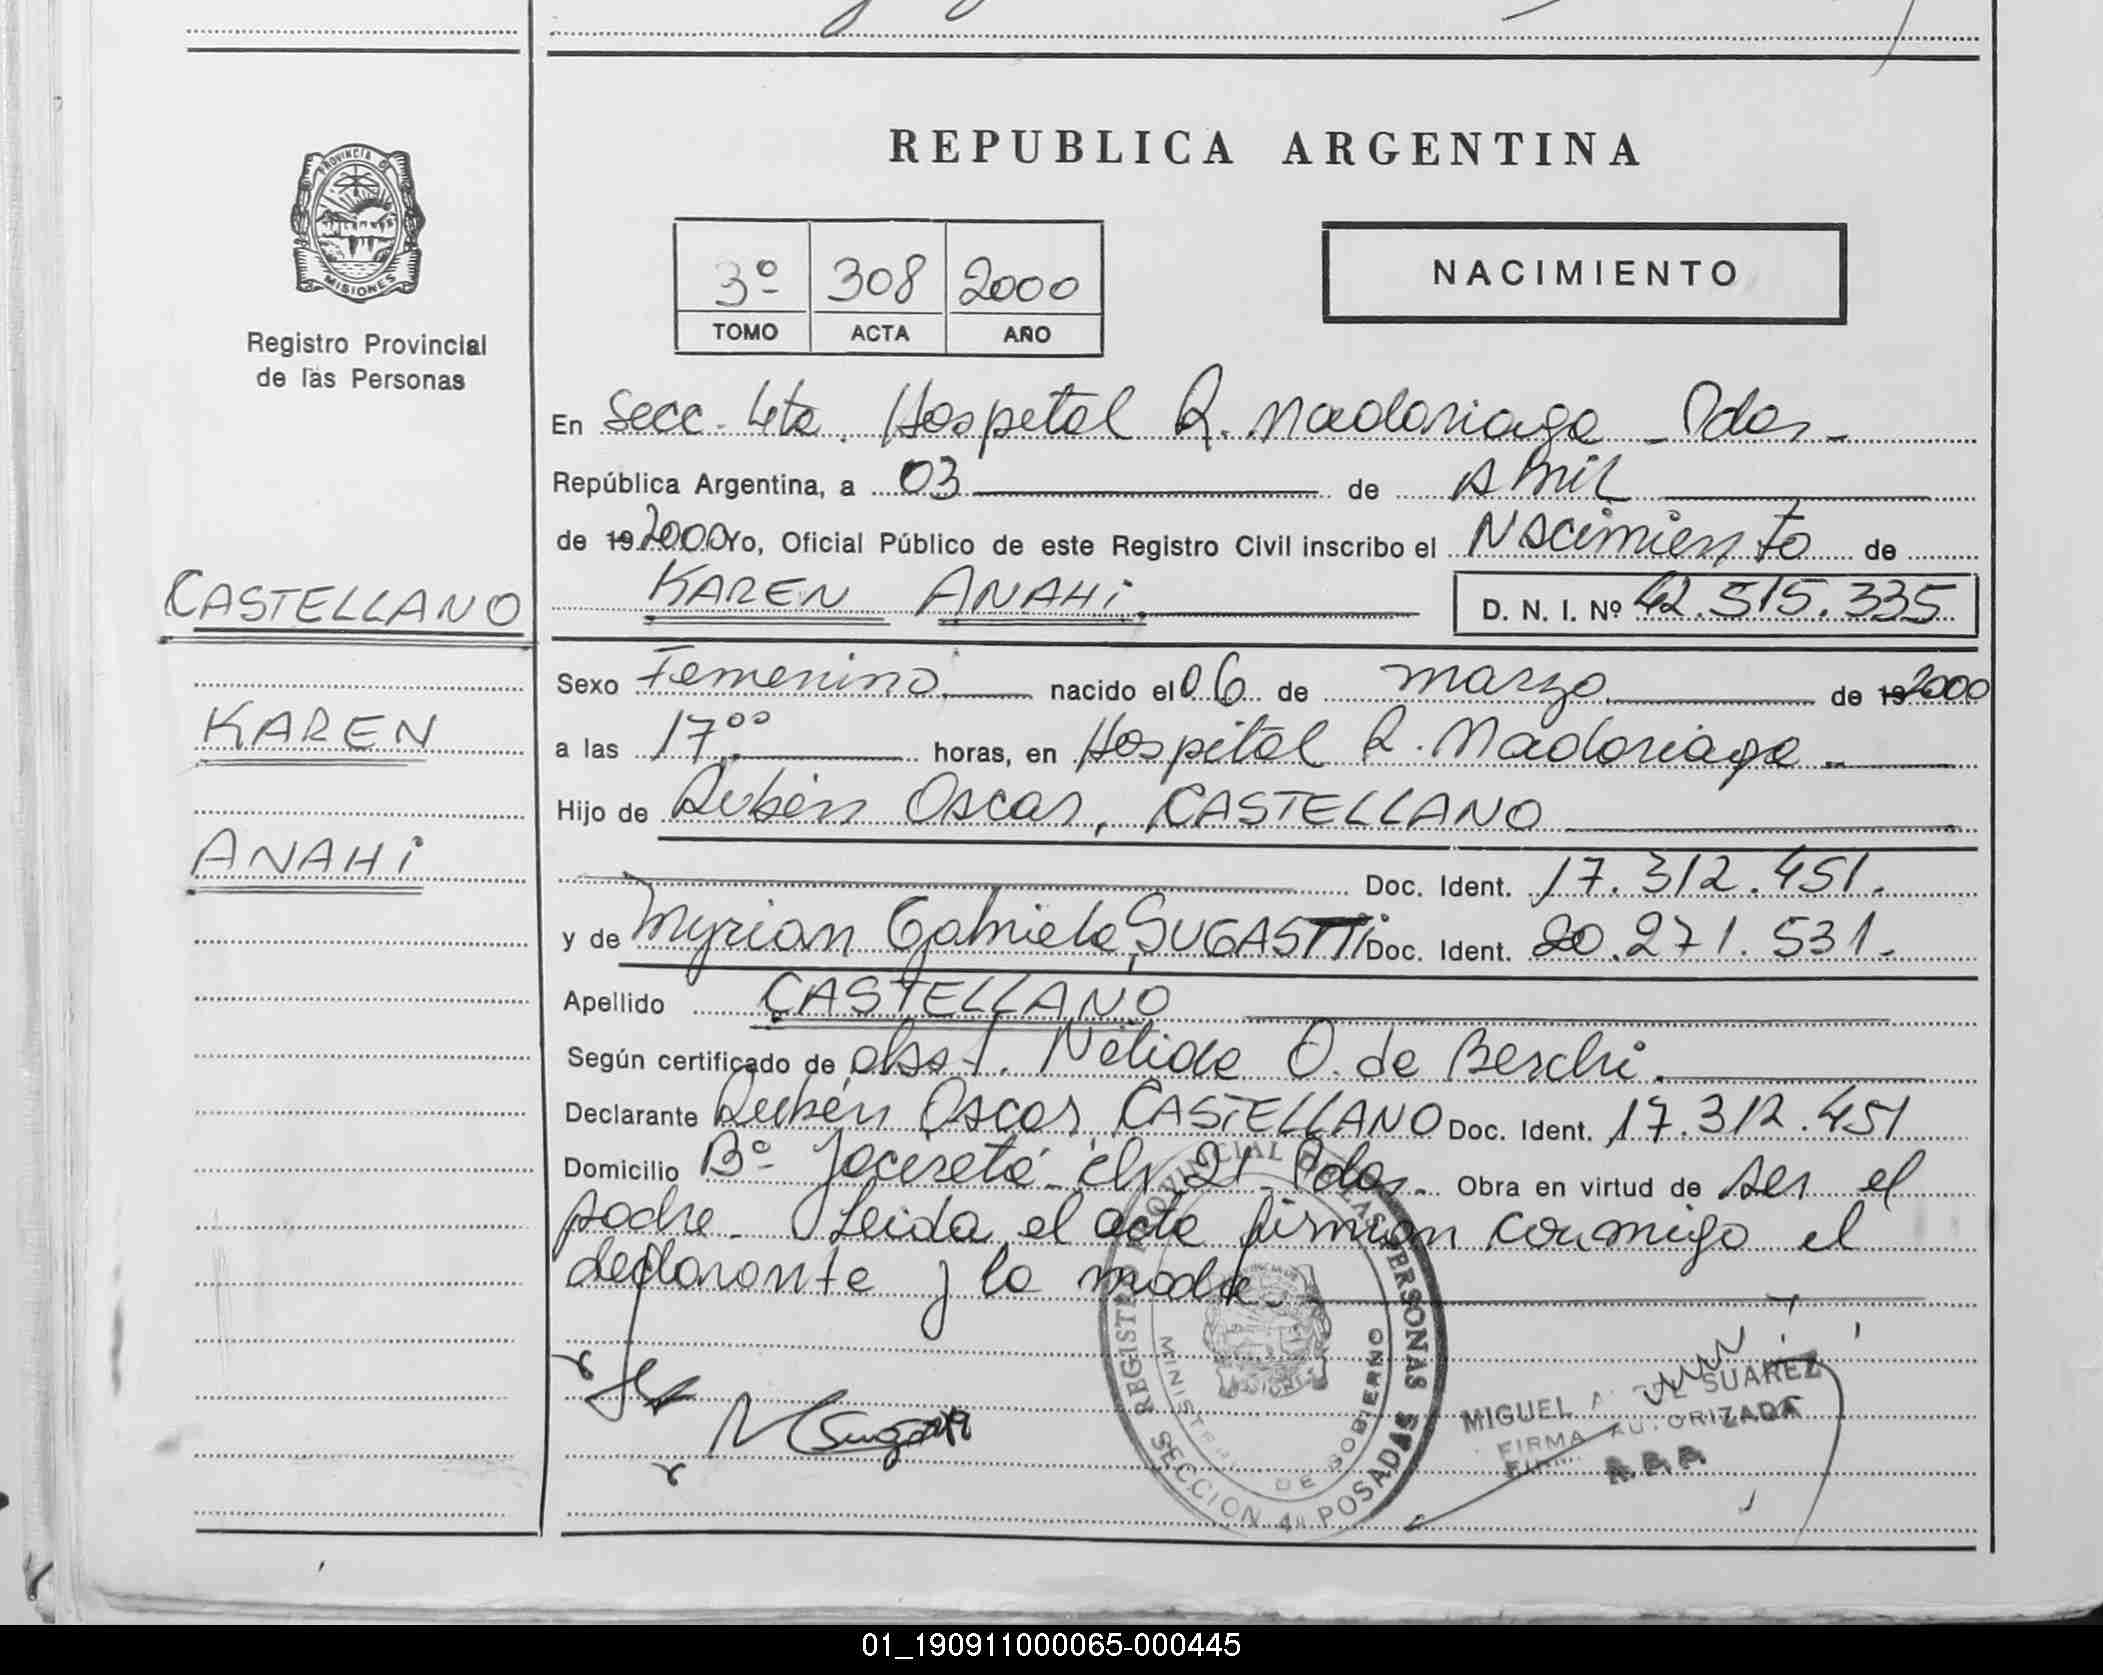 REPUBLICA ARGENTINA
PROVINCIA DE
MISIONES
Registro Provincial
de las Personas
3º 308 2000
TOMO ACTA AÑO
NACIMIENTO
En Secc. 4ta. Hospital R. Madariaga - Pdas -
República Argentina, a 03 de Abril
de 19 2000 Yo, Oficial Público de este Registro Civil inscribo el Nacimiento de
KAREN ANAHi D. N. I. Nº 42.515.335
CASTELLANO
KAREN
ANAHi
Sexo Femenino nacido el 06 de marzo de 19 2000
a las 17⁰⁰ horas, en Hospital R. Madariaga
Hijo de Rubén Oscar, CASTELLANO
Doc. Ident. 17.312.451.
y de Myrian Gabriela, SUGASTTi Doc. Ident. 20.271.531.
Apellido CASTELLANO
Según certificado de obst. Nélida O. de Berchi.
Declarante Rubén Oscar CASTELLANO Doc. Ident. 17.312.451
Domicilio Bº Yacireta ch 21 Pdas. Obra en virtud de ser el
padre. Leida el acta firman conmigo el
declarante y la madre.
REGISTRO PROVINCIAL DE LAS PERSONAS
MINISTERIO DE GOBIERNO
SECCION 4ª POSADAS
MISIONES
MIGUEL SUAREZ
FIRMA AUTORIZADA
01_190911000065-000445